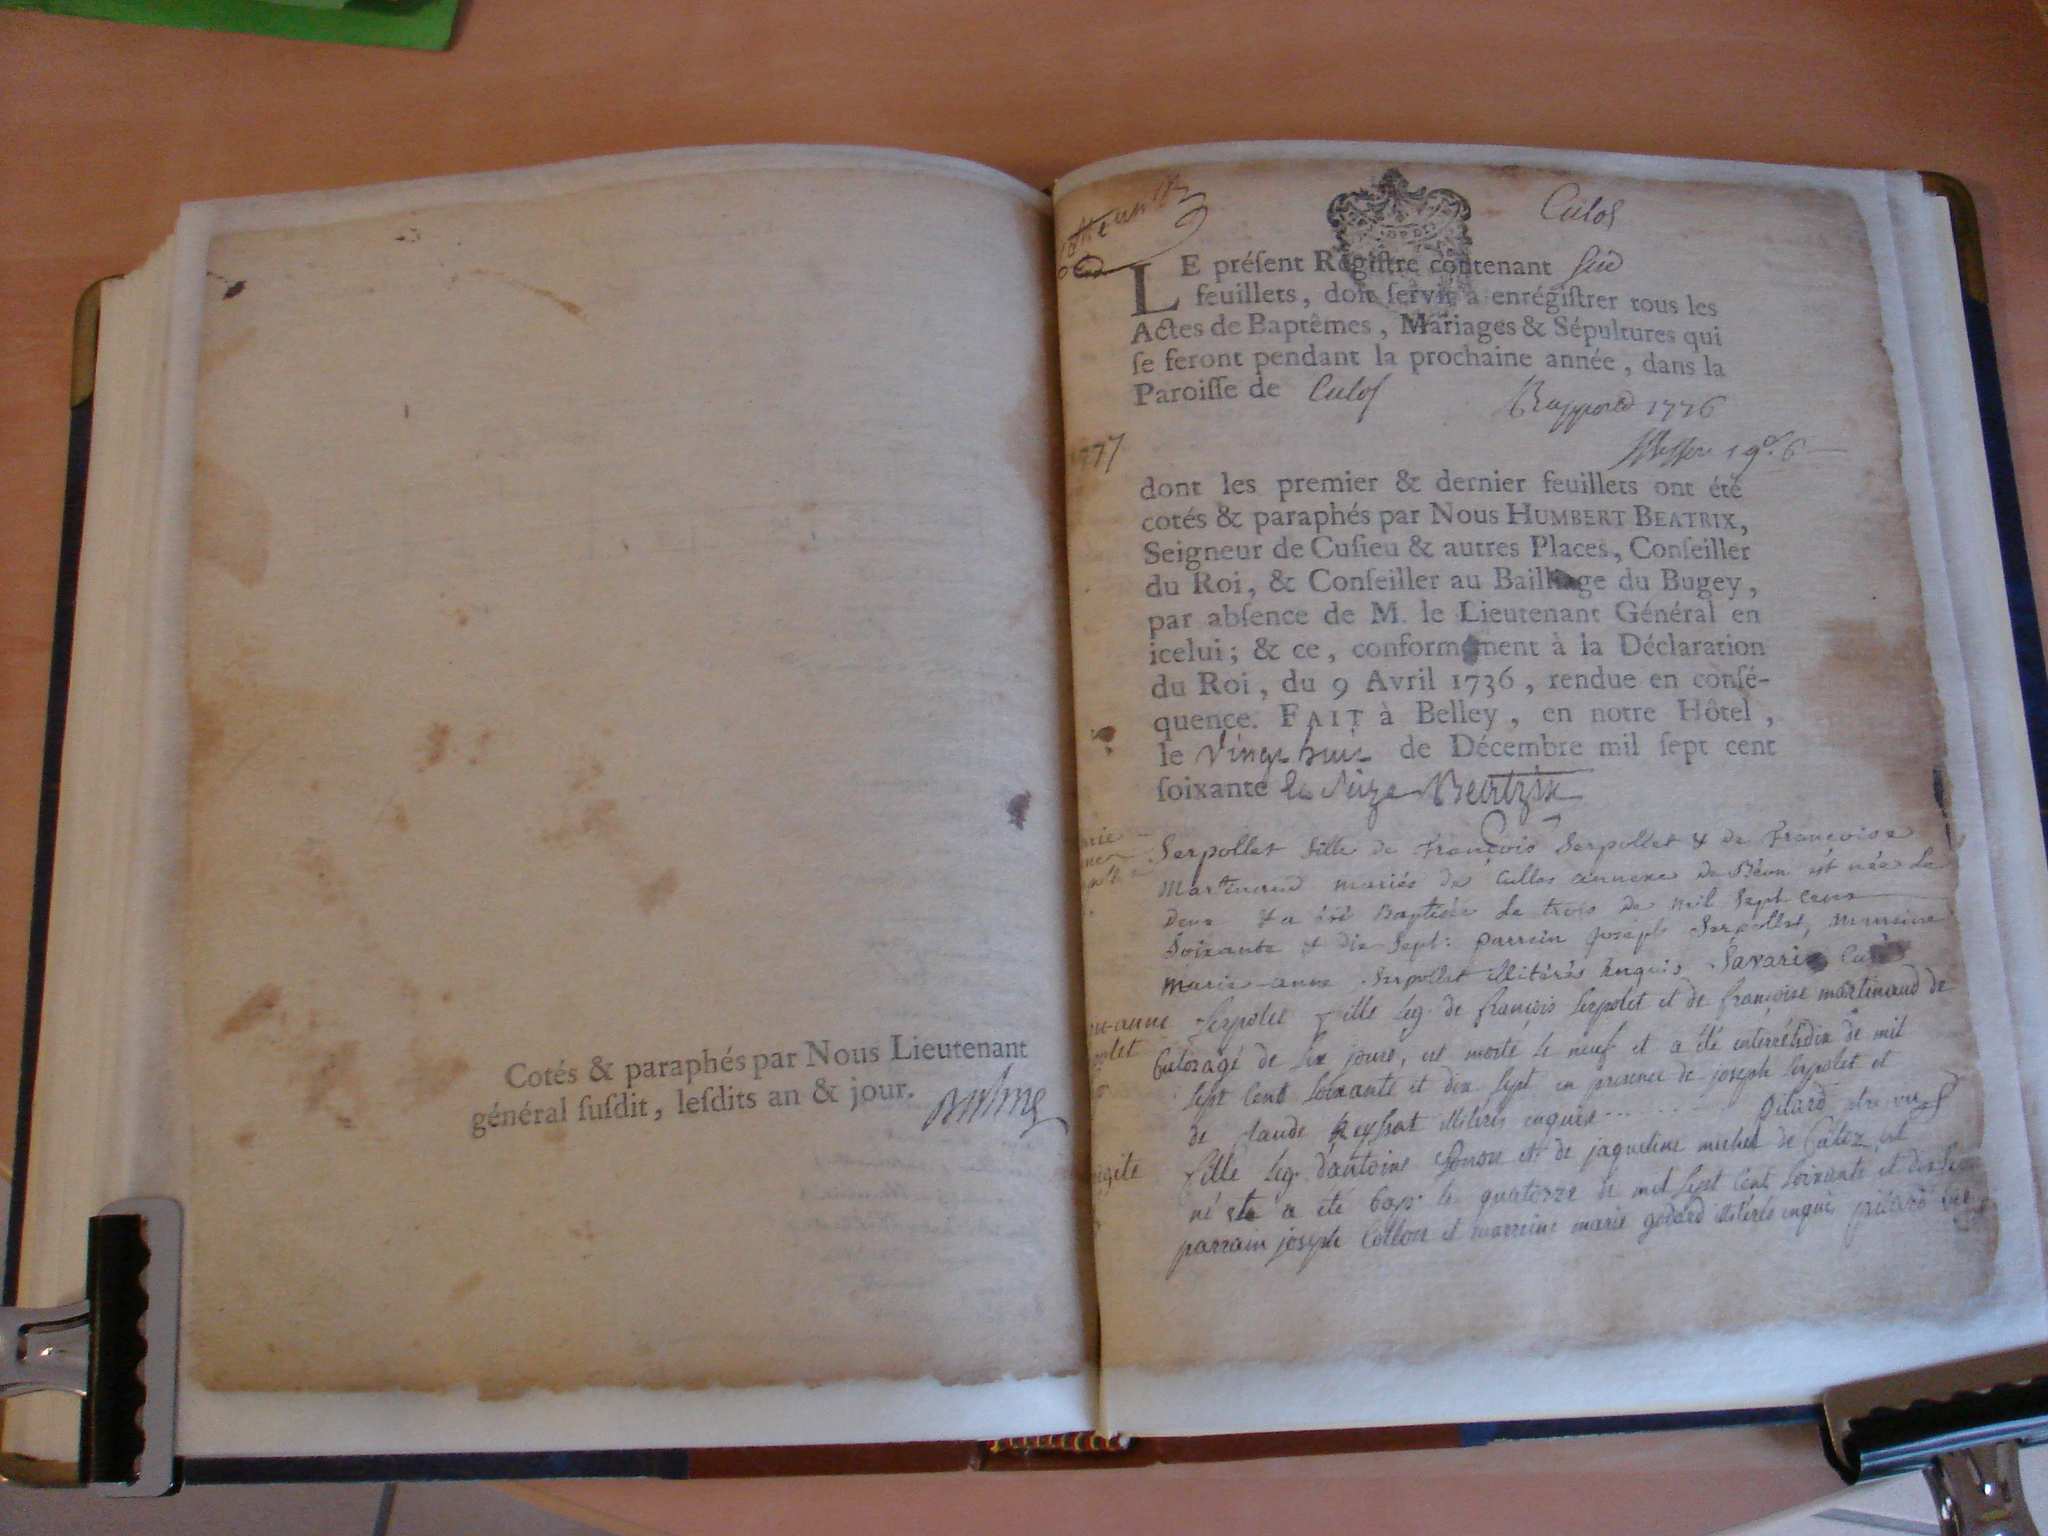 Cotés & paraphés par Nous Lieutenant
général ſuſdit, leſdits an & jour.
Culos
LE préſent Régiſtre contenant Six
feuillets, doit ſervir à enrégiſtrer tous les
Actes de Baptêmes, Mariages & Sépultures qui
ſe feront pendant la prochaine année, dans la
Paroiſſe de Culos
1776
1777
dont les premier & dernier feuillets ont été
cotés & paraphés par Nous HUMBERT BEATRIX,
Seigneur de Cuſieu & autres Places, Conſeiller
du Roi, & Conſeiller au Bailliage du Bugey,
par abſence de M. le Lieutenant Général en
icelui; & ce, conformément à la Déclaration
du Roi, du 9 Avril 1736, rendue en conſé-
quence. FAIT à Belley, en notre Hôtel,
le Vingt huit de Décembre mil ſept cent
ſoixante et Seize Beatrix
Serpollet fille de François Serpollet & de Françoise
Martinand mariés de Culos annexe de Béon est née le
deux & a été Baptisée le trois de mil sept cens
soixante & dix sept: parrein joseph Serpollet, marreine
marie-anne Serpollet illitérés enquis Savarin Curé
-anne Serpolet fille leg. de françois Serpolet et de françoise martinaud de
Culoz agé de six jours, est morte le neuf et a été enterré le dix de mil
sept cent soixante et dix sept en presence de joseph Serpolet et
de Claude illiterés enquis
fille leg. d'antoine et de jaqueline michel de Culoz est
né et a été bap. le quatorze de mil sept cent soixante et dix sept
parrain joseph et marreine marie illiterés enquis